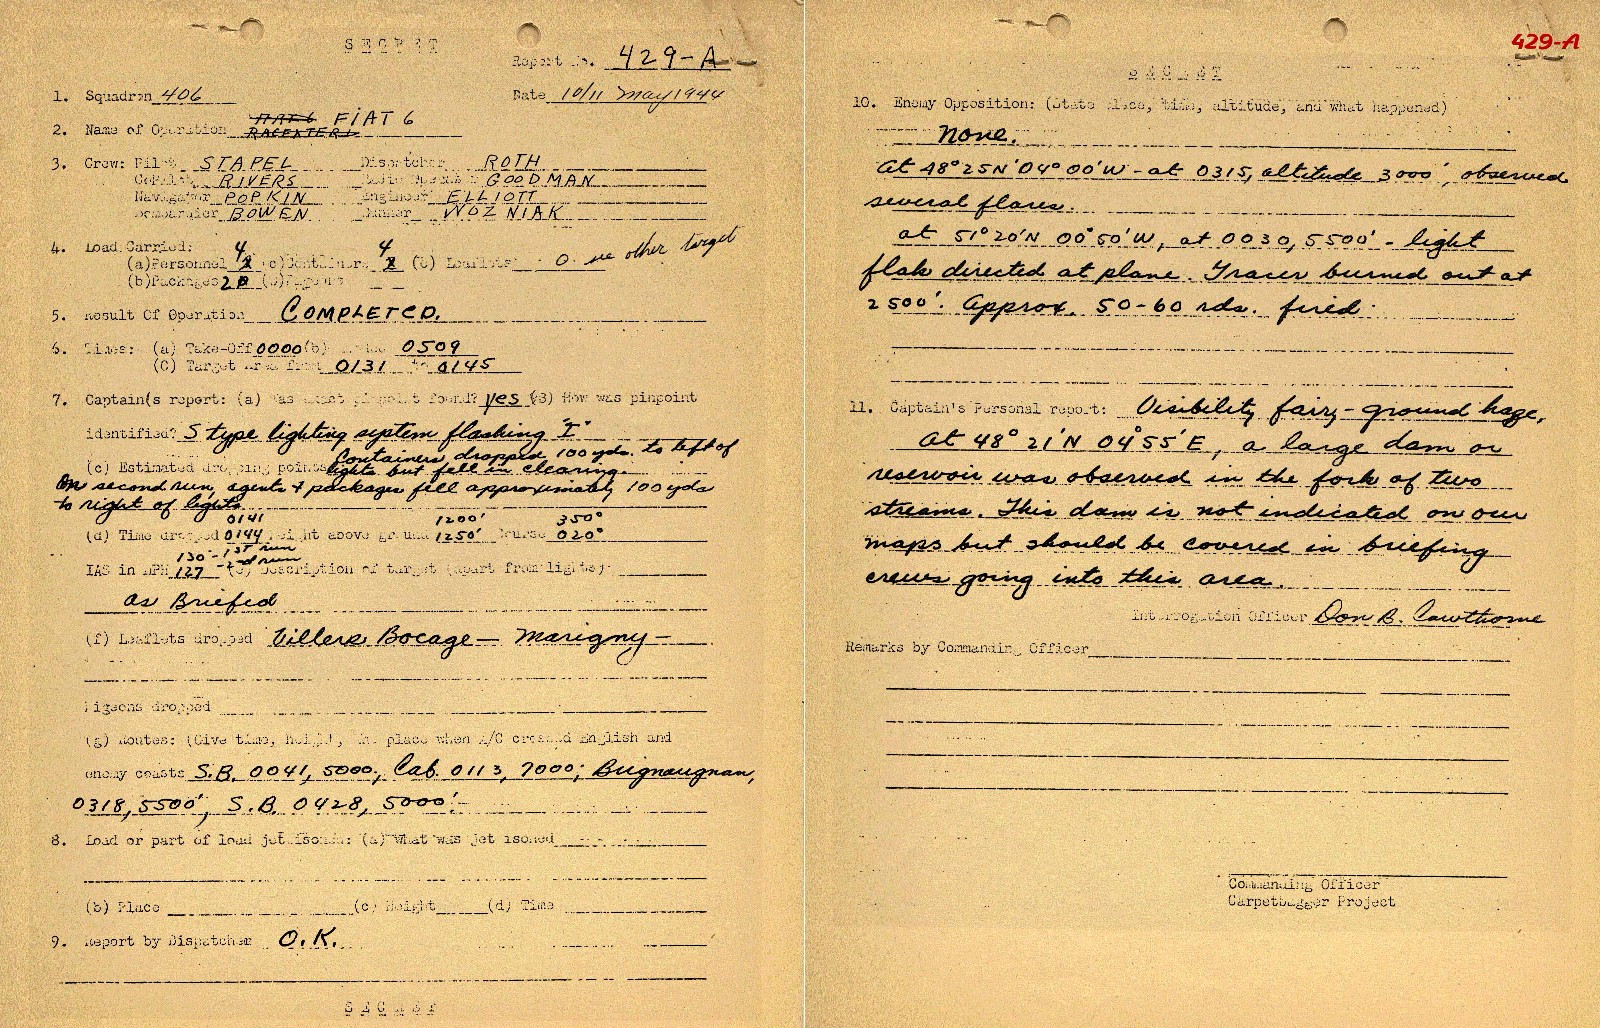 SECRET
Report No. 429-A
1. Squadron 406
Date 10/11 May 1944
2. Name of Operation FIAT 6 RACEATER 1 FIAT 6
3. Crew: Pilot STAPEL Dispatcher ROTH
CoPilot RIVERS Radio Operator GOODMAN
Navigator POPKIN Engineer ELLIOTT
Bombardier BOWEN Gunner WOZNIAK
4. Load Carried: 4 4
(a)Personnel (c)Containers (e) Leaflets 0 see other target
(b)Packages 20 (d)Pigeons
5. Result Of Operation COMPLETED.
6. Times: (a) Take-Off 0000 (b) 0509
(C) Target Area from 0131 to 0145
7. Captain(s report: (a) Was exact pinpoint found? yes (B) How was pinpoint
identified? S type lighting system flashing "I"
Containers dropped 100 yds. to left of
(c) Estimated dropping points lights but fell in clearing.
On second run, agents & packages fell approximately 100 yds
to right of lights
0141 1200' 350°
(d) Time dropped 0144 height above ground 1250' Course 020°
130 - 1st run
IAS in MPH 127 - 2nd run (e) Description of target (apart from lights)
as Briefed
(f) Leaflets dropped Villers Bocage — Marigny —
Pigeons dropped
(g) Routes: (Give time, height, and place when A/C crossed English and
enemy coasts S.B. 0041, 5000; Cab. 0113, 7000; Brignaugnan,
0318, 5500', S.B. 0428, 5000'.
8. Load or part of load jettisoned: (a) What was jettisoned
(b) Place (c) Height (d) Time
9. Report by Dispatcher O.K.
SECRET
429-A
SECRET
10. Enemy Opposition: (State place, time, altitude, and what happened)
None.
At 48° 25N' 04° 00'W - at 0315, altitude 3000', observed
several flares.
at 51° 20'N 00° 50'W, at 0030, 5500' - light
flak directed at plane. Tracer burned out at
2500'. Approx. 50-60 rds. fired.
11. Captain's Personal report: Visibility fair, - ground haze.
At 48° 21'N 04° 55'E, a large dam or
reservoir was observed in the fork of two
streams. This dam is not indicated on our
maps but should be covered in briefing
crews going into this area.
Interrogation Officer Don B. Cawthorne
Remarks by Commanding Officer
Commanding Officer
Carpetbagger Project